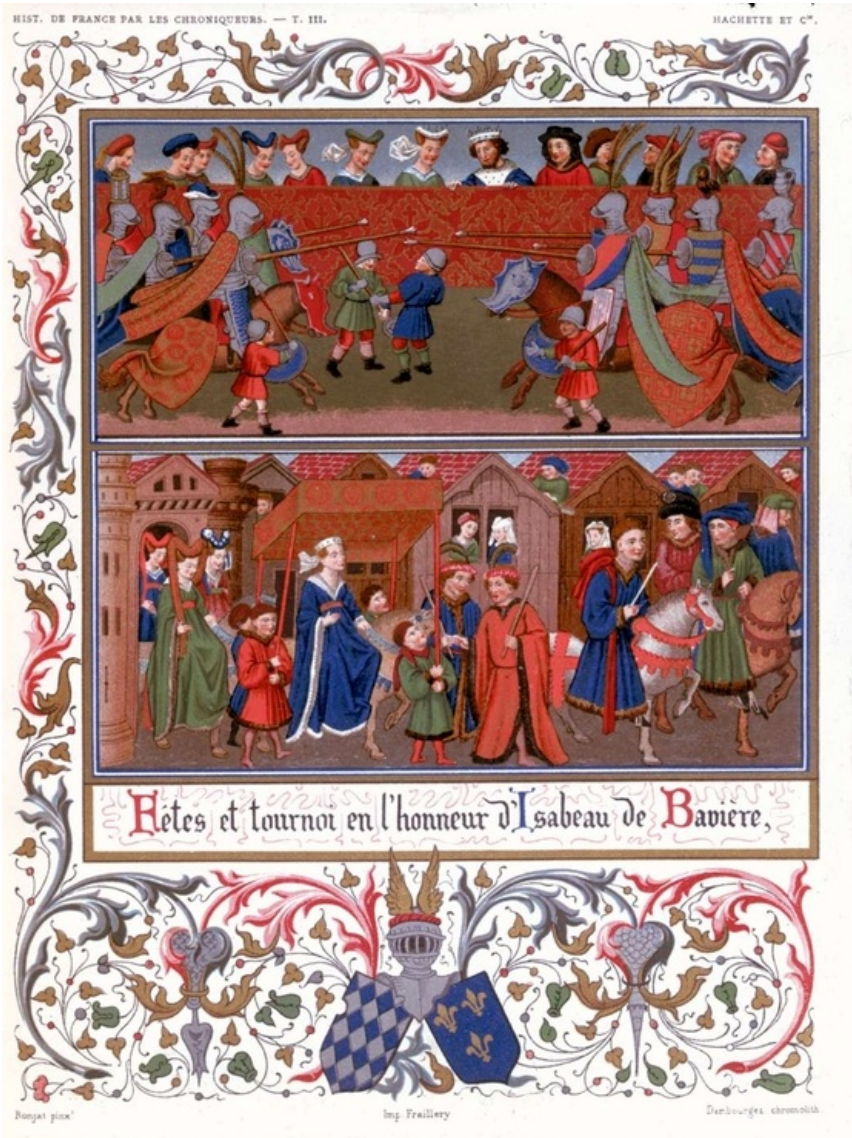 HIST. DE FRANCE PAR LES CHRONIQUEURS. — T. III. HACHETTE ET Cie.
Fêtes et tournoi en l'honneur d'Isabeau de Bavière,
Ronjat pinxt Imp. Fraillery Dambourgez chromolith.